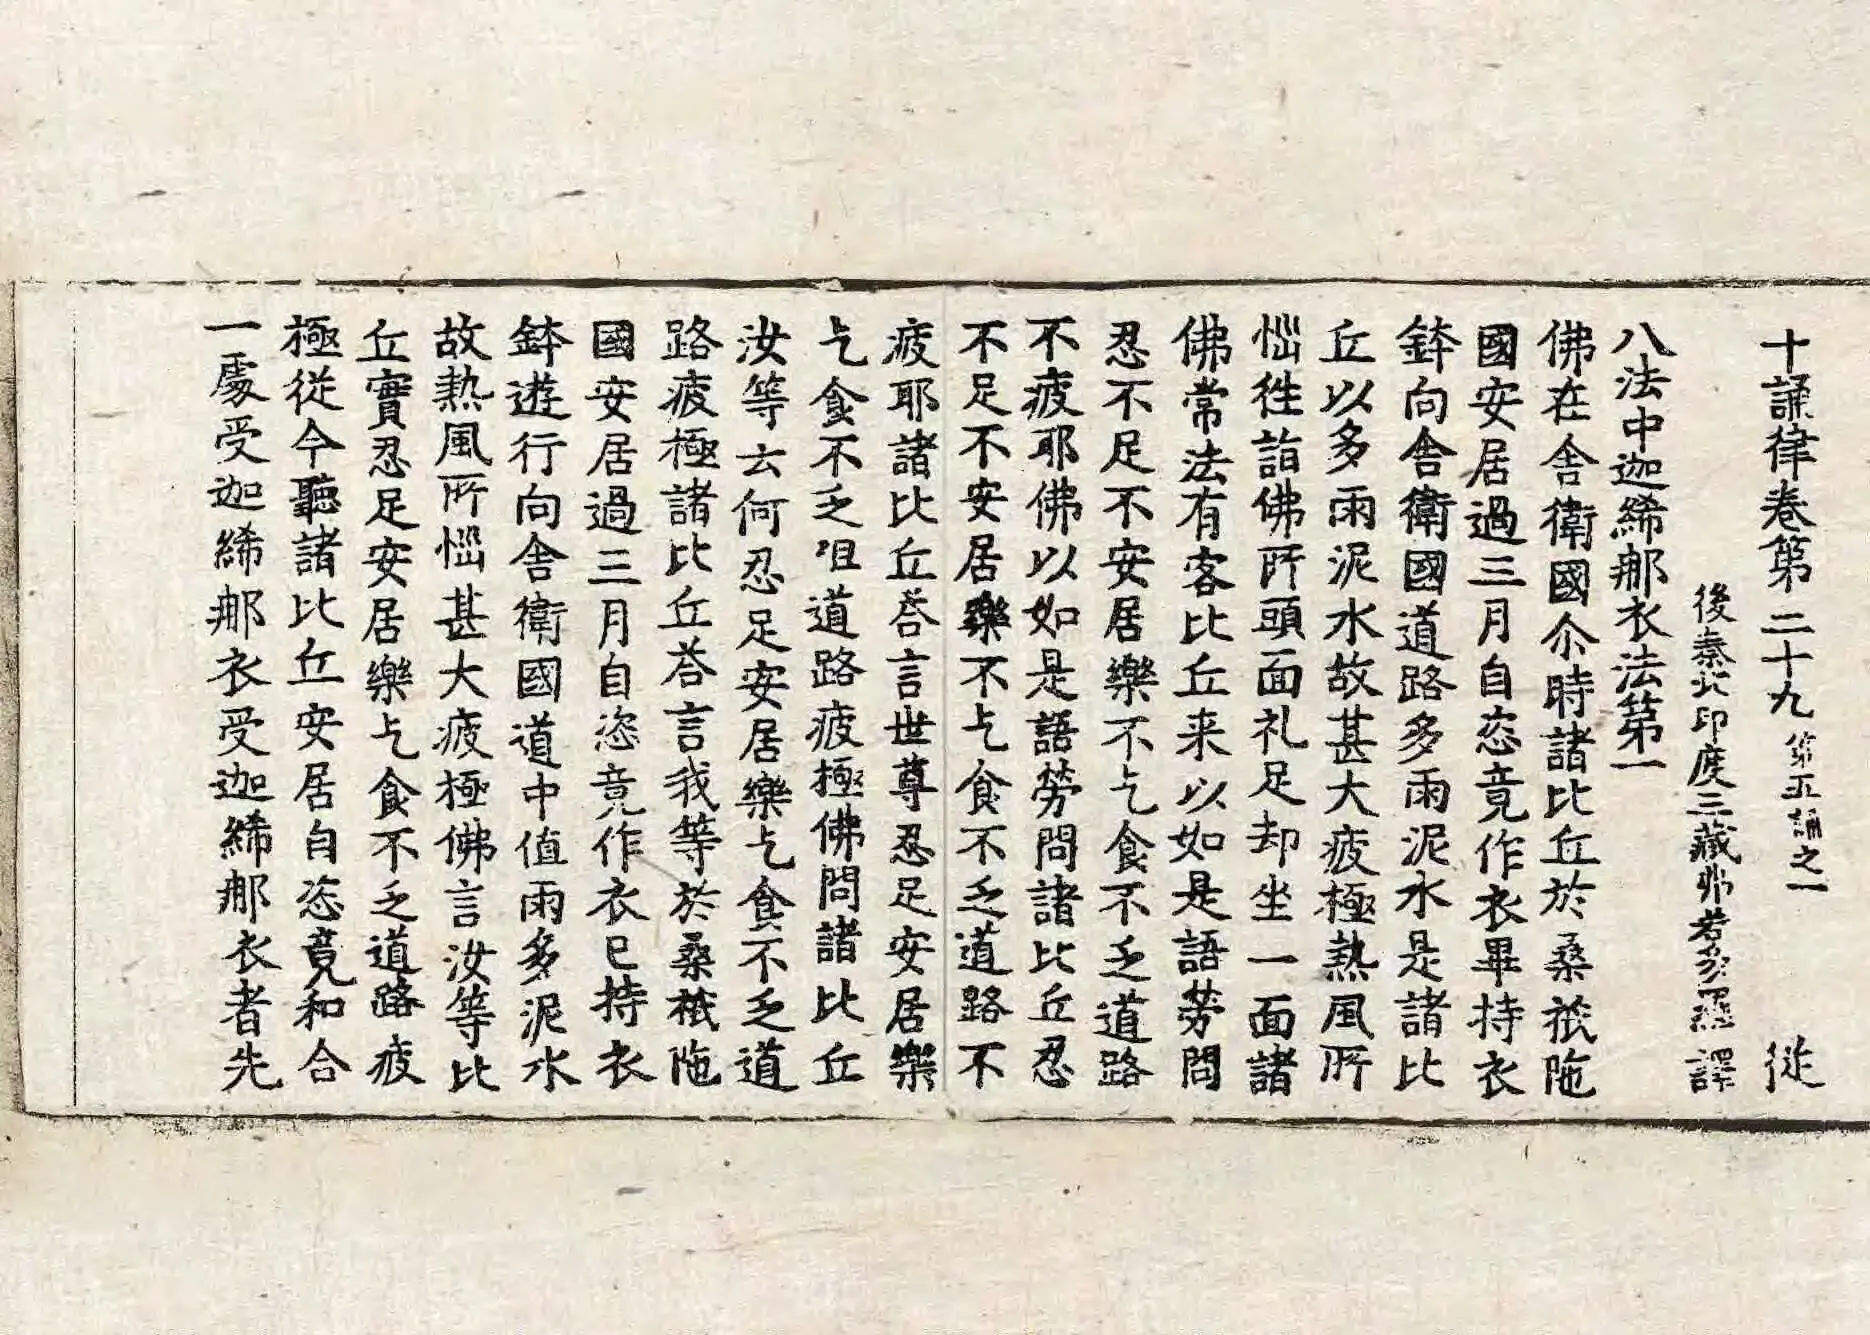 十誦律卷第二十九 第五誦之一 従
後秦北印度三藏弗若多羅 譯
八法中迦絺那衣法第一
佛在舎衛國尒時諸比丘於桒祇陁
國安居過三月自恣竟作衣畢持衣
鉢向舎衛國道路多雨泥水是諸比
丘以多雨泥水故甚大疲極熱風所
惱徃詣佛所頭面礼足却坐一面諸
佛常法有客比丘来以如是語勞問
忍不足不安居樂不乞食不乏道路
不疲耶佛以如是語勞問諸比丘忍
不足不安居樂不乞食不乏道路不
疲耶諸比丘荅言世尊忍足安居樂
乞食不乏但道路疲極佛問諸比丘
汝等云何忍足安居樂乞食不乏道
路疲極諸比丘荅言我等於桒祇陁
國安居過三月自恣竟作衣已持衣
鉢遊行向舎衛國道中值雨多泥水
故熱風所惱甚大疲極佛言汝等比
丘實忍足安居樂乞食不乏道路疲
極従今聽諸比丘安居自恣竟和合
一處受迦絺那衣受迦絺那衣者先